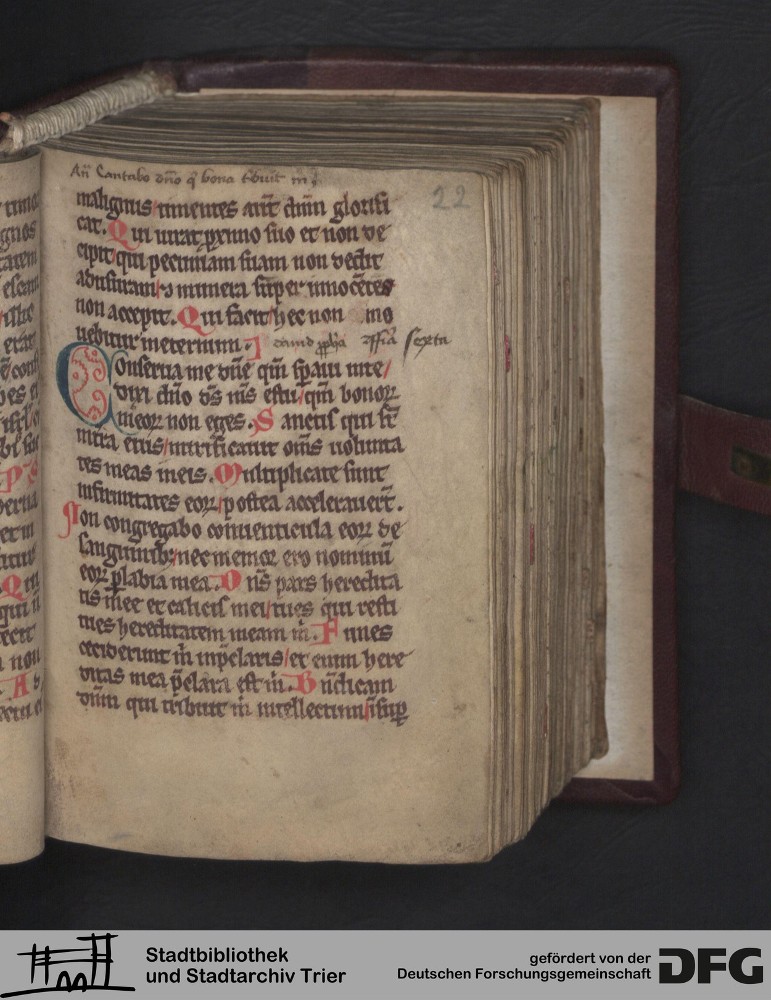 Añ Cantabo dño q̃ bona tribuit m̃
22
malignus / timentes aũt dñm glorifi
cat. Qui iurat pximo suo et non de
cipit / qui pecuniam suam non dedit
ad usuram / ⁊ munera super innocẽtes
non accepit. Qui facit / hec non mo
uebitur in eternum.
sexta
Conserua me dñe qm̃ spaui in te /
dixi dño d̃s m̃s es tu / qm̃ bonoꝝ
meoꝝ non eges. Sanctis qui st̃
in tra eius / mirificauit om̃s uolunta
tes meas in eis. Multiplicate sunt
infirmitates eoꝝ / postea accelerauert̃.
Non congregabo conuenticula eoꝝ de
sanguinib; / nec memor ero nominũ
eoꝝ p labia mea. Dñs pars heredita
tis mee et calicis mei / tu es qui resti
tues hereditatem meam m̃. Funes
ceciderunt m̃ in p̃claris / et enim here
ditas mea p̃clara est m̃. Bñdicam
dñm qui tribuit m̃ intellectum / insuꝑ
Stadtbibliothek
und Stadtarchiv Trier
gefördert von der
Deutschen Forschungsgemeinschaft
DFG